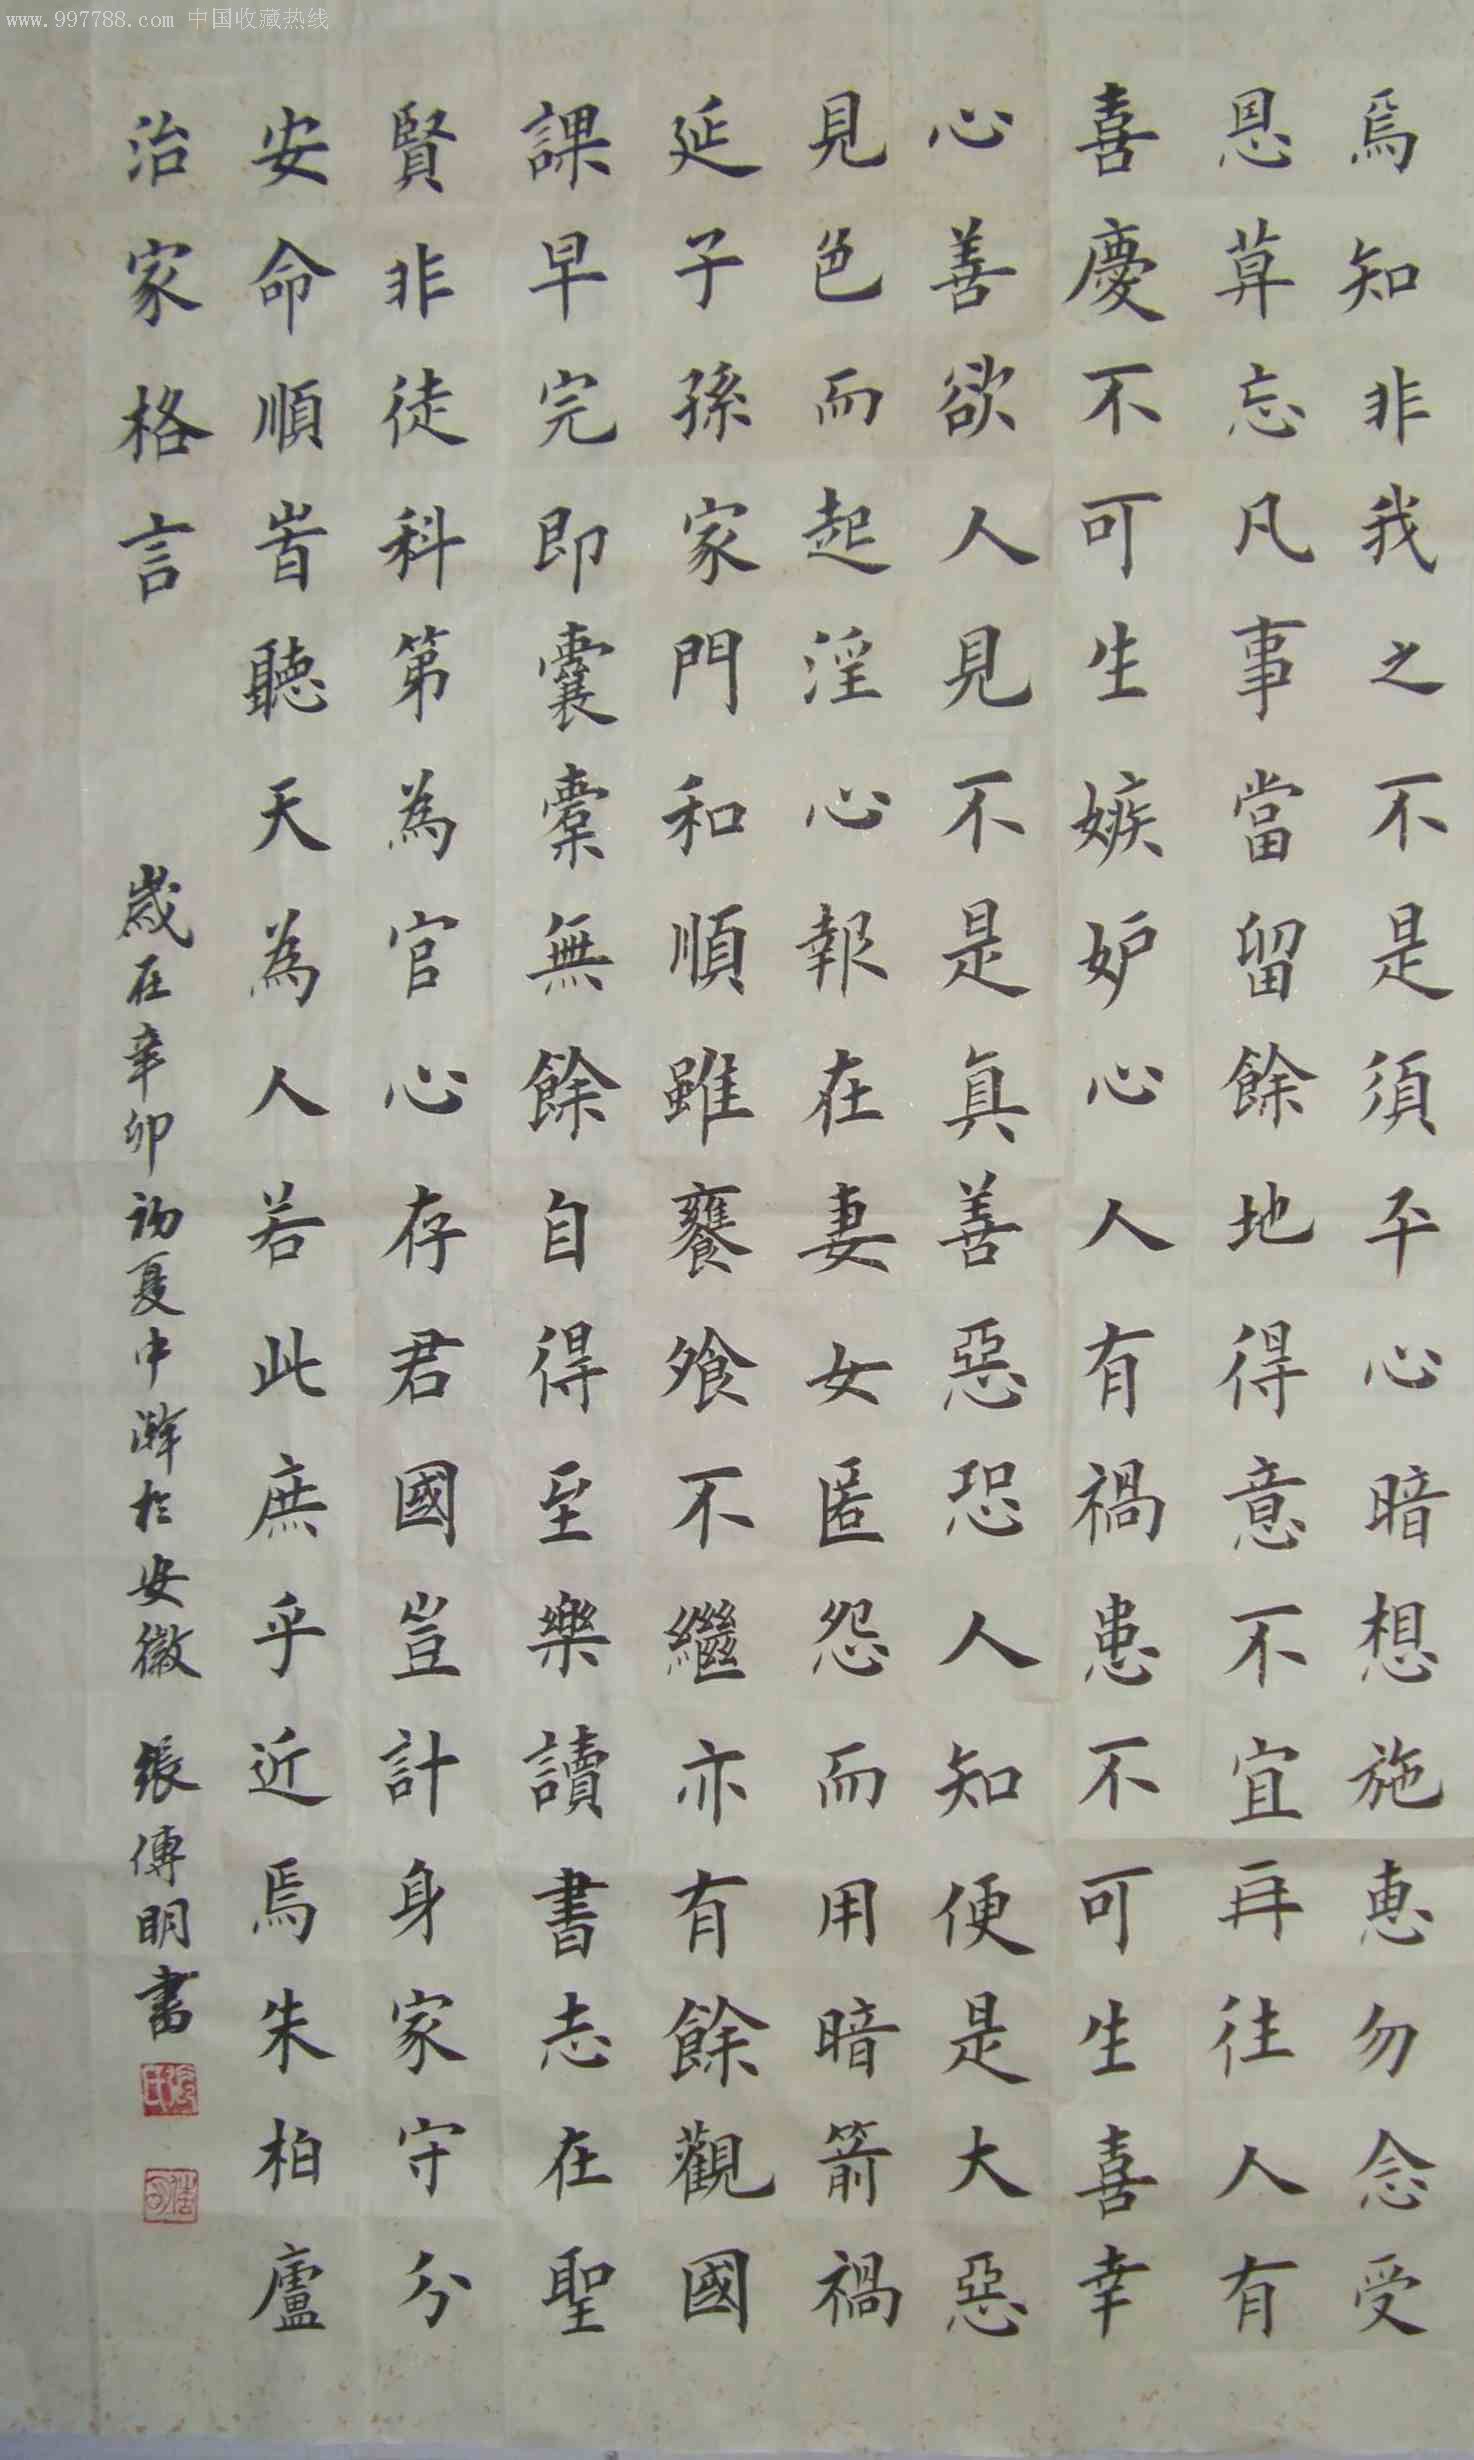 www.997788.com 中国收藏热线
焉知非我之不是須平心暗想施惠勿念受
恩草忘凡事當留餘地得意不宜再往人有
喜慶不可生嫉妒心人有禍患不可生喜幸
心善欲人見不是真善惡恐人知便是大惡
見色而起淫心報在妻女匿怨而用暗箭禍
延子孫家門和順雖饔飧不繼亦有餘觀國
課早完即囊橐無餘自得至樂讀書志在聖
賢非徒科第為官心存君國豈計身家守分
安命順旹聽天為人若此庶乎近焉朱柏廬
治家格言 歲在辛卯初夏中澣於安徽 張傳明書